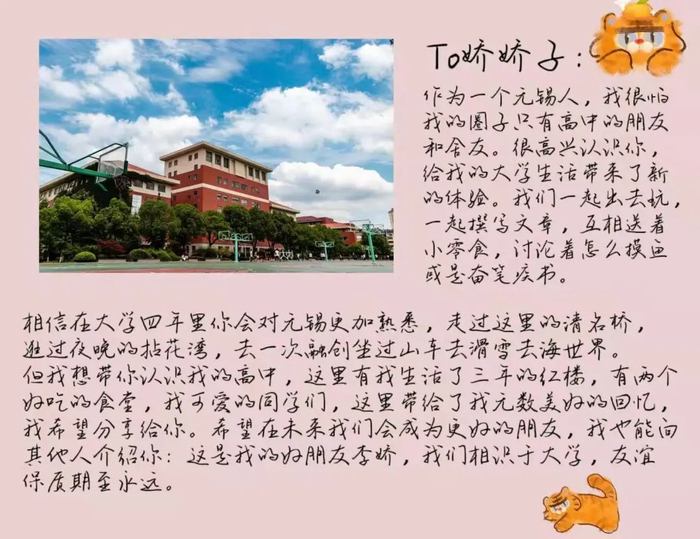 To娇娇子：
作为一个无锡人，我很怕
我的圈子只有高中的朋友
和舍友。很高兴认识你，
给我的大学生活带来了新
的体验。我们一起出去玩，
一起撰写文章，互相送着
小零食，讨论着怎么摸鱼
或是奋笔疾书。
相信在大学四年里你会对无锡更加熟悉，走过这里的清名桥，
逛过夜晚的拈花湾，去一次融创坐过山车去滑雪去海世界。
但我想带你认识我的高中，这里有我生活了三年的红楼，有两个
好吃的食堂，我可爱的同学们，这里带给了我无数美好的回忆，
我希望分享给你。希望在未来我们会成为更好的朋友，我也能向
其他人介绍你：这是我的好朋友李娇，我们相识于大学，友谊
保质期至永远。